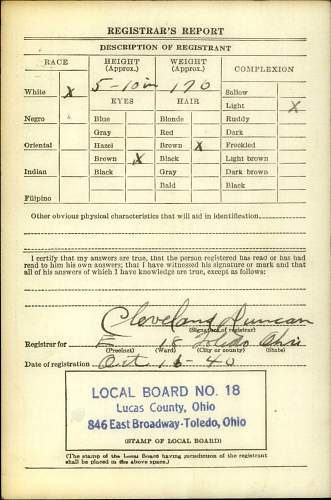 REGISTRAR'S REPORT
DESCRIPTION OF REGISTRANT
RACE HEIGHT (Approx.) WEIGHT (Approx.) COMPLEXION
White X 5-10 in 170 Sallow
EYES HAIR Light X
Negro Blue Blonde Ruddy
Gray Red Dark
Oriental Hazel Brown X Freckled
Brown X Black Light brown
Indian Black Gray Dark brown
Bald Black
Filipino
Other obvious physical characteristics that will aid in identification
I certify that my answers are true, that the person registered has read or has had
read to him his own answers; that I have witnessed his signature or mark and that
all of his answers of which I have knowledge are true, except as follows:
Cleveland Duncan
(Signature of registrar)
Registrar for E 18 Toledo Ohio
(Precinct) (Ward) (City or county) (State)
Date of registration Oct 16-40
LOCAL BOARD NO. 18
Lucas County, Ohio
846 East Broadway-Toledo, Ohio
(STAMP OF LOCAL BOARD)
(The stamp of the Local Board having jurisdiction of the registrant
shall be placed in the above space.)